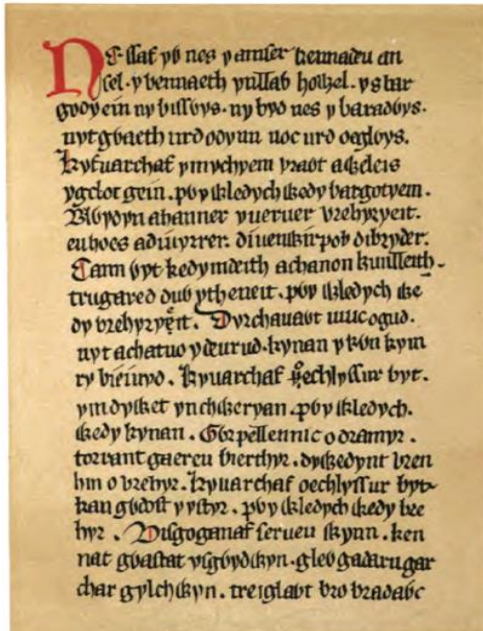 Neſſaf yỽ nes y amſer kennadeu an
ſel. y bennaeth yn llaỽ hoỽel. yſtar
govyein ny biſſỽys. ny byd nes y baradỽys.
nyt gỽaeth urd odyun noc urd oeglỽys.
kyfuarchaf ymychyem vraỽt aỽdeis
ygclot gein. pỽy ỽledych ỽedy bargotyein.
Blỽydyn ahanner y ueruer vrehyryeit.
eu hoes adiuyrrer. diuenỽir pob dibryder.
Cann ỽyt kedymdeith achanon kunlleith.
trugared duỽ yth eneit. pỽy ỽledych ỽe
dy vrehyryeit. Dyrchauaỽt un o gud.
nyt achatuo y deurud. kynan y kỽn kym
ry bieiuyd. kyuarchaf oechlyſſur byt.
ymdyſket yn pỽy ỽledych.
ỽedy kynan. Gỽr pellennic o dramyr.
torrant gaereu dyỽedynt vren
hin o vrehyr. kyuarchaf oechlyſſur byt
kan gỽdoſt y yſtyr. pỽy ỽledych ỽedy bre
hyr. Diſgoganaf ſerueu ỽynn. ken
nat gỽaſtat yſgỽydỽyn. gleỽ gadarn gar
char gylchỽyn. treiglaỽt bro bradaỽc